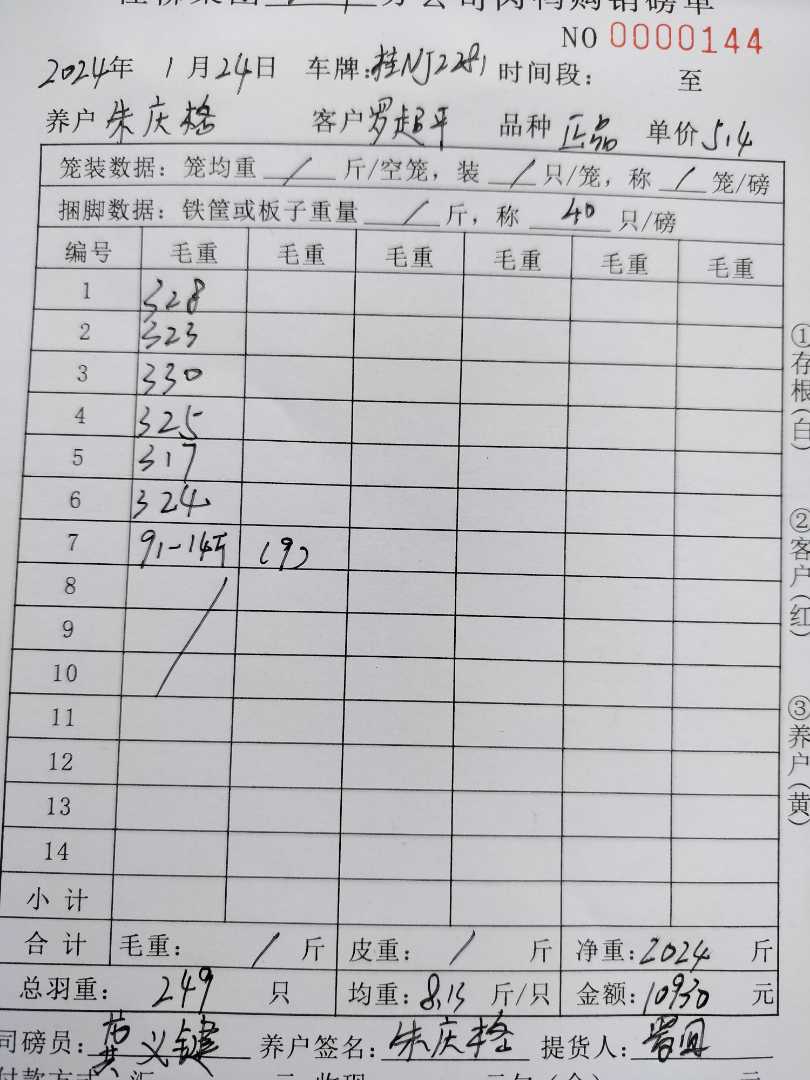 NO 0000144
2024年 1月24日 车牌:桂NJ2281 时间段: 至
养户 朱庆格 客户 罗超平 品种 正品 单价 5.4
笼装数据: 笼均重 / 斤/空笼, 装 / 只/笼, 称 / 笼/磅
捆脚数据: 铁筐或板子重量 / 斤, 称 40 只/磅
编号 毛重 毛重 毛重 毛重 毛重 毛重
1 328
2 323
3 330
4 325
5 317
6 324
7 91-14斤 (9)
8
9
10
11
12
13
14
小 计
合 计 毛重: / 斤 皮重: / 斤 净重: 2024 斤
总羽重: 249 只 均重: 8.13 斤/只 金额: 10930 元
司磅员: 黄义键 养户签名: 朱庆格 提货人:
①存根(白)
②客户(红)
③养户(黄)